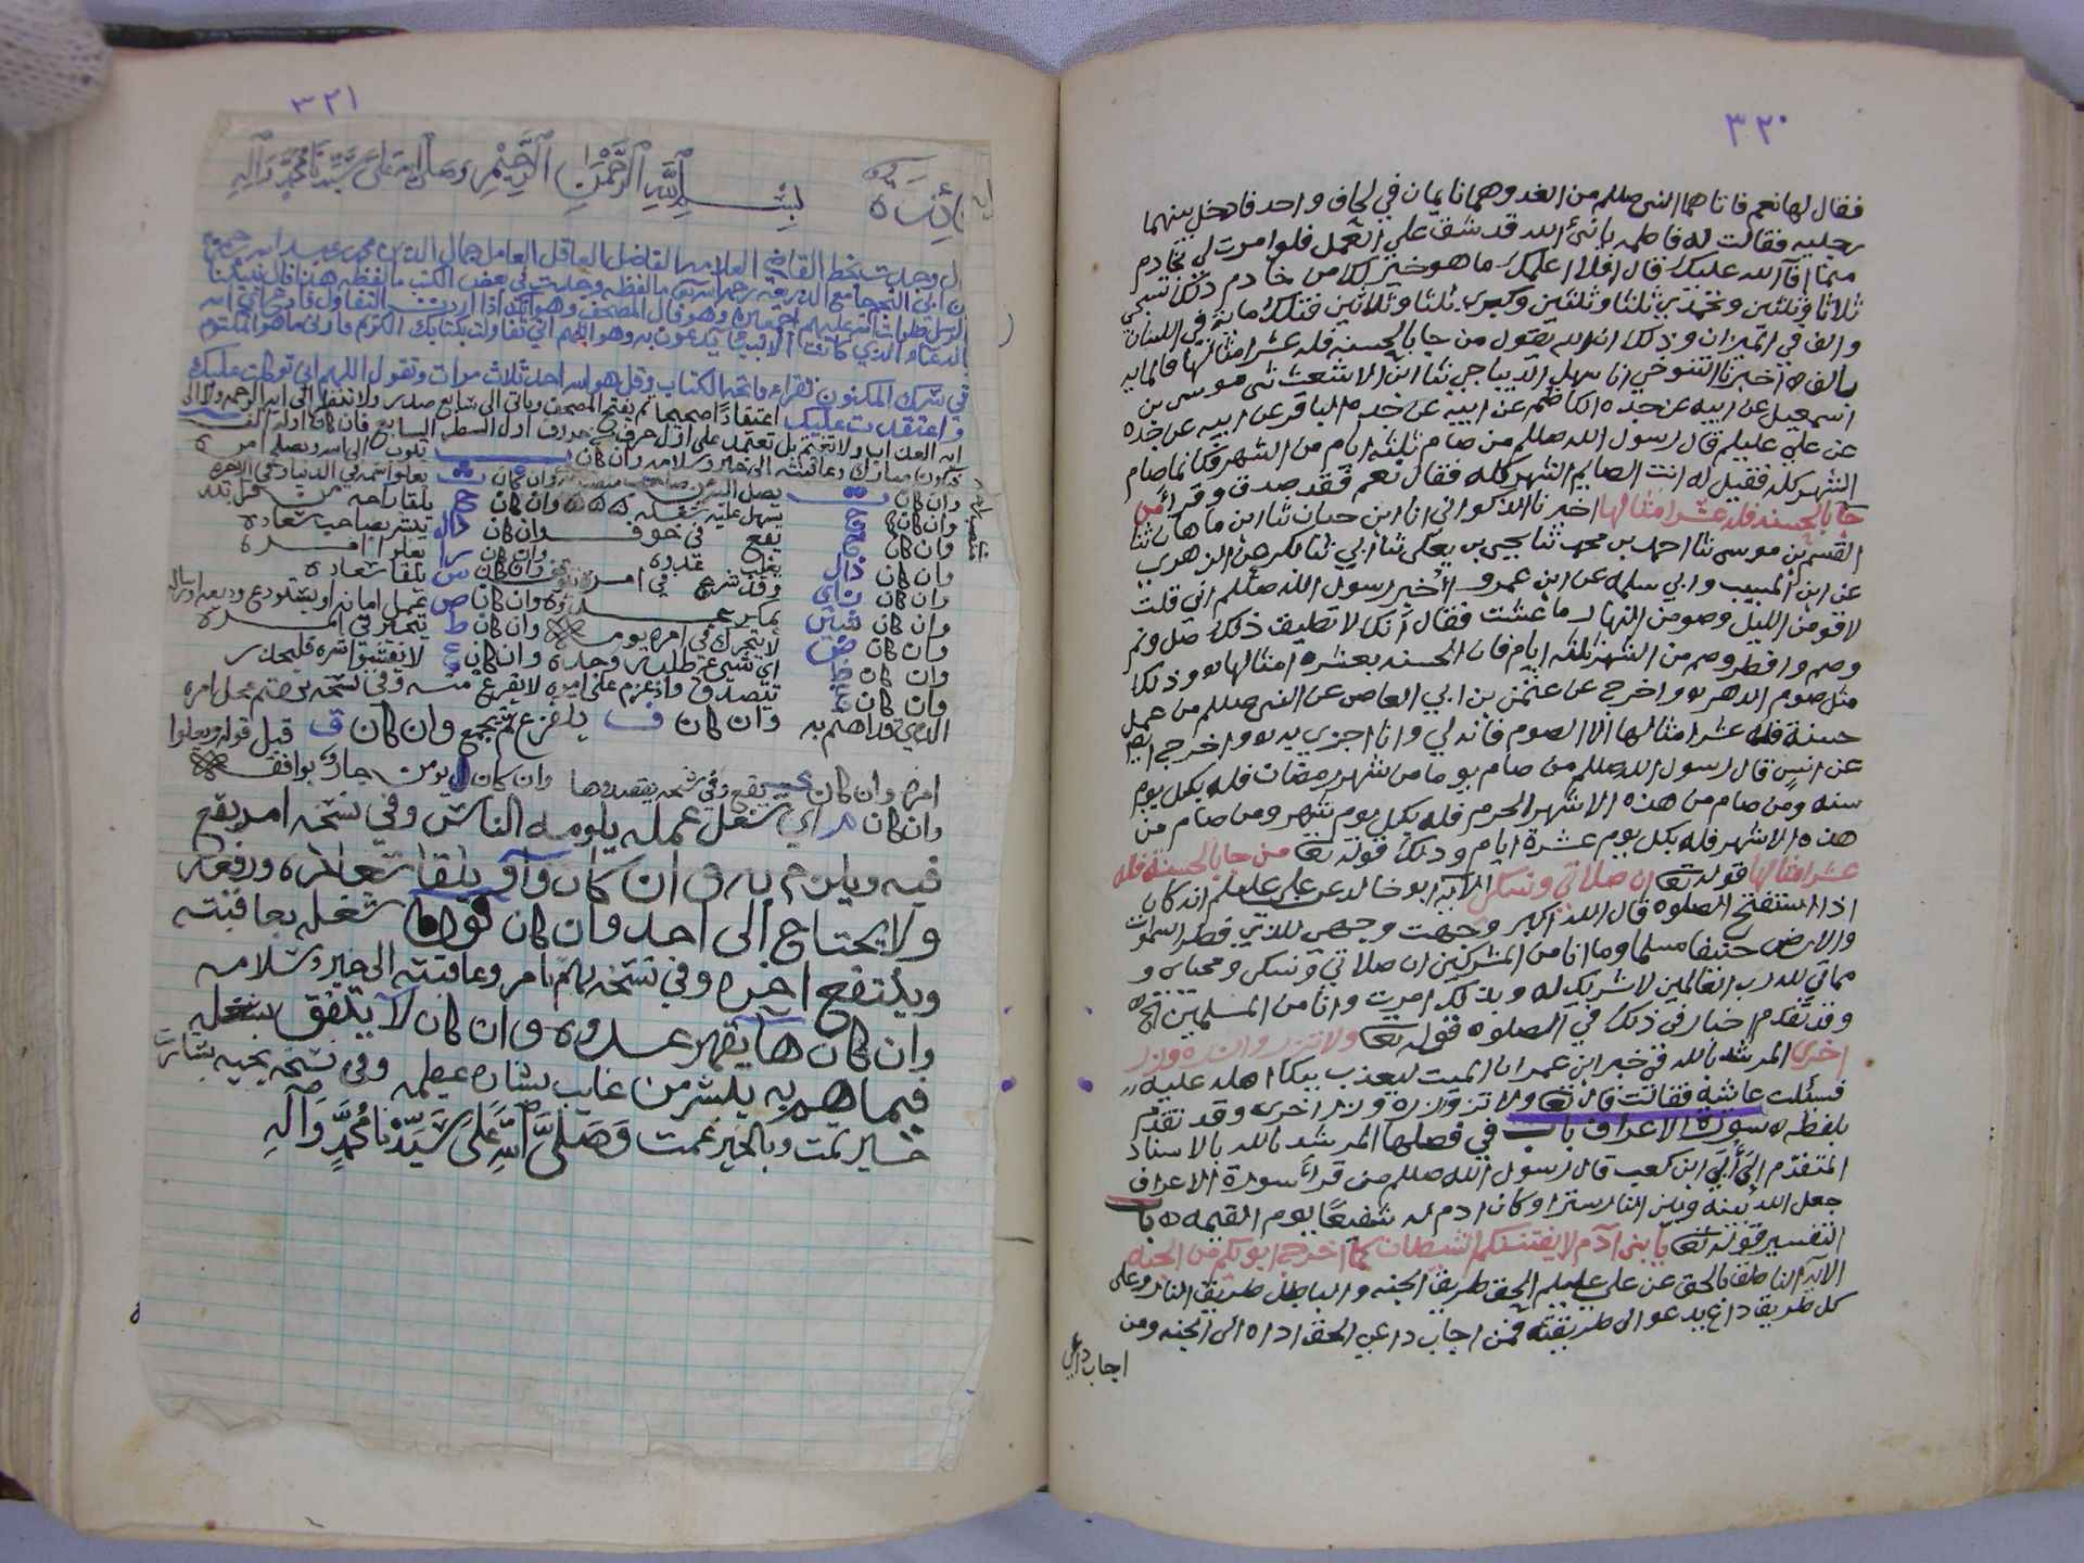 ٣٢٠
فقال لها نعم فاتاهما النبي صللم من الغد وهما نايمان في لحاف واحد فادخل بينهما
رجليه فقالت له فاطمه يا نبي الله قد شق علي العمل فلو امرت لي بخادم
مما افآ الله عليك قال افلا اعلمك ما هو خير لك من خادم ذلك تسبحي
ثلاثا وثلثين وتحمدي ثلثا وثلثين وكبري ثلثا وثلاثين فتلك ماية في اللسان
والف في الميزان وذلك ان الله يقول من جا بالحسنه فله عشر امثالها فالمايه
بالف ه اخبرنا التنوخي انا سهل الديباجي ثنا ابن الاشعث ثني موسى بن
اسمعيل عن ابيه عن جده الكاظم عن ابيه عن جده الباقر عن ابيه عن جده
عن علي عليلم قال رسول الله صللم من صام ثلثه ايام من الشهر فكانما صام
الشهر كله فقيل له انت الصايم الشهر كله فقال نعم فقد صدق وقرأ من
جا بالحسنه فله عشر امثالها اخبرنا الذكواني انا ابن حيان ثنا ابن ماهان ثنا
القسم بن موسى ثنا احمد بن محمد ثنا يحيى بن يعلى ثنا ابي ثنا بكر عن الزهري
عن ابن المسيب وابي سلمه عن ابن عمرو أُخبر رسول الله صللم اني قلت
لاقومن الليل وصومن النهار ما عشت فقال انك لا تطيق ذلك صل ونم
وصم وافطر وصم من الشهر ثلثه ايام فان الحسنه بعشره امثالها وذلك
مثل صوم الدهر واخرج عن عثمن بن ابي العاص عن النبي صللم من عمل
حسنة فله عشر امثالها الا الصوم فانه لي وانا اجزي به واخرج ايضا
عن انس قال رسول الله صللم من صام يوما من شهر رمضان فله بكل يوم
سنه ومن صام من هذه الاشهر الحرم فله بكل يوم شهر ومن صام من
هذه الاشهر فله بكل يوم عشرة ايام وذلك قوله تعا من جا بالحسنة فله
عشر امثالها قوله تعا ان صلاتي ونسكي الآيه ابو خالد عن علي عليلم انه كان
اذا استفتح الصلوه قال الله اكبر وجهت وجهي للذي فطر السموات
والارض حنيفا مسلما وما انا من المشركين ان صلاتي ونسكي ومحياي و
مماتي لله رب العالمين لا شريك له وبذلك امرت وانا من المسلمين
وقد تقدم اخبار في ذلك في الصلوه قوله تعا ولا تزر وازره وزر
اخرى المرشد بالله في خبر ابن عمر ان الميت ليعذب ببكا اهله عليه
فسئلت عائشة فقالت قال تعا ولا تزر وازره وزر اخرى وقد تقدم
بلفظه ه سورة الاعراف باب في فضلها المرشد بالله بالاسناد
المتقدم الى أُبَي ابن كعب قال رسول الله صللم من قرأ سورة الاعراف
جعل الله بينه وبين النار سترا وكان ادم له شفيعًا يوم القيمه ه باب
التفسير قوله تعا يا بني آدم لا يفتننكم الشيطان كما اخرج ابويكم من الجنه
الايه الناطق بالحق عن علي عليلم الحق طريق الجنه والباطل طريق النار وعلى
كل طريق داع يدعو الى طريقته فمن اجاب داعي الحق اداه الى الجنه ومن
اجاب داعي
٣٢١
فائده بِسْمِ اللَّهِ الرَّحْمَنِ الرَّحِيْمِ وصلى الله على سَيِّدِنَا مُحَمَّدٍ وَآلِهِ
وجدت بخط القاضي العلامه الفاضل العاقل العامل جمال الدين محمد بن عبد الله
بن ابي النجم جامع الشريعه رحمه الله تعا ما لفظه وجدت في بعض الكتب ما لفظه هذا فال نبينا
الرسل صلوات الله عليهم اجمعين وهو فال المصحف وهو انك اذا اردت التفاول
الدعاء الذي كانت الانبيا يدعون به وهو اللهم اني تفاولت بكتابك الكريم فارني ما هو المكتوم
في سرك المكنون تقراء فاتحه الكتاب وقل هو الله احد ثلاث مرات وتقول اللهم اني توكلت عليك
واعتقدت عليك اعتقادًا صحيحا ثم يفتح المصحف وياتي الى سابع سطر ولا تنظر الى ايه الرحمه ولا الى
ايه العذاب ولا تغتم بل تعتمد على اول حرف من حروف اول السطر السابع فان كان اوله الف
يكون مبارك وعاقبته الى خير وسلامه وان كان ب يتوب الى الله ويصلح امره
وان كان ت يصل وان كان ث يعلوا اسمه في الدنيا وفي الاخره
وان كان ج يسهل عليه شغله ه ه ه وان كان ح يلقا راحه من قبل
وان كان خ يقع في خوف وان كان دال يبشر بصاحب سعاده
وان كان ذال يغلب عدوه وان كان را يغلب امره
وان كان زاي وقد شرع في امر وان كان س يلقا سعاده
وان كان شين يمكر عدوه وان كان ص يحمل امانه او يستودع وديعه
وان كان ض لا يتحرك في امره يومه وان كان ط يتحير في امره
وان كان ظ اي شي عزم طلبه وحده وان كان ع لا يفتش سره فليحذر
وان كان غ يتصدق واذ عزم على امره لا يفزع منه وفي نسخه
الذي قد اهتم به وان كان ف يلفزع ثم يجمع وان كان ق قبل قوله ويعلوا
امره وان كان ك يقع وفي نسخه يقصدها وان كان ل يومن حاذر يوافقه
وان كان م اي شغل عمله يلومه الناس وفي نسخه امر يقع
فيه ويلزم به وان كان واو يلقا سعاده ورفعه
ولا يحتاج الى احد وان كان نون شغله بعاقبته
وينتفع اخره وفي نسخه يهم بامر وعاقبته الى خير وسلامه
وان كان ها يقهر عدوه وان كان لا يتفق شغله
فيما هم به يبشر من غايب بشاره عظيمه وفي نسخه يجيه بشارت
خير تمت وبالخير عمت وَصَلَّى اللَّهُ عَلَى سَيِّدِنَا مُحَمَّدٍ وَآلِهِ